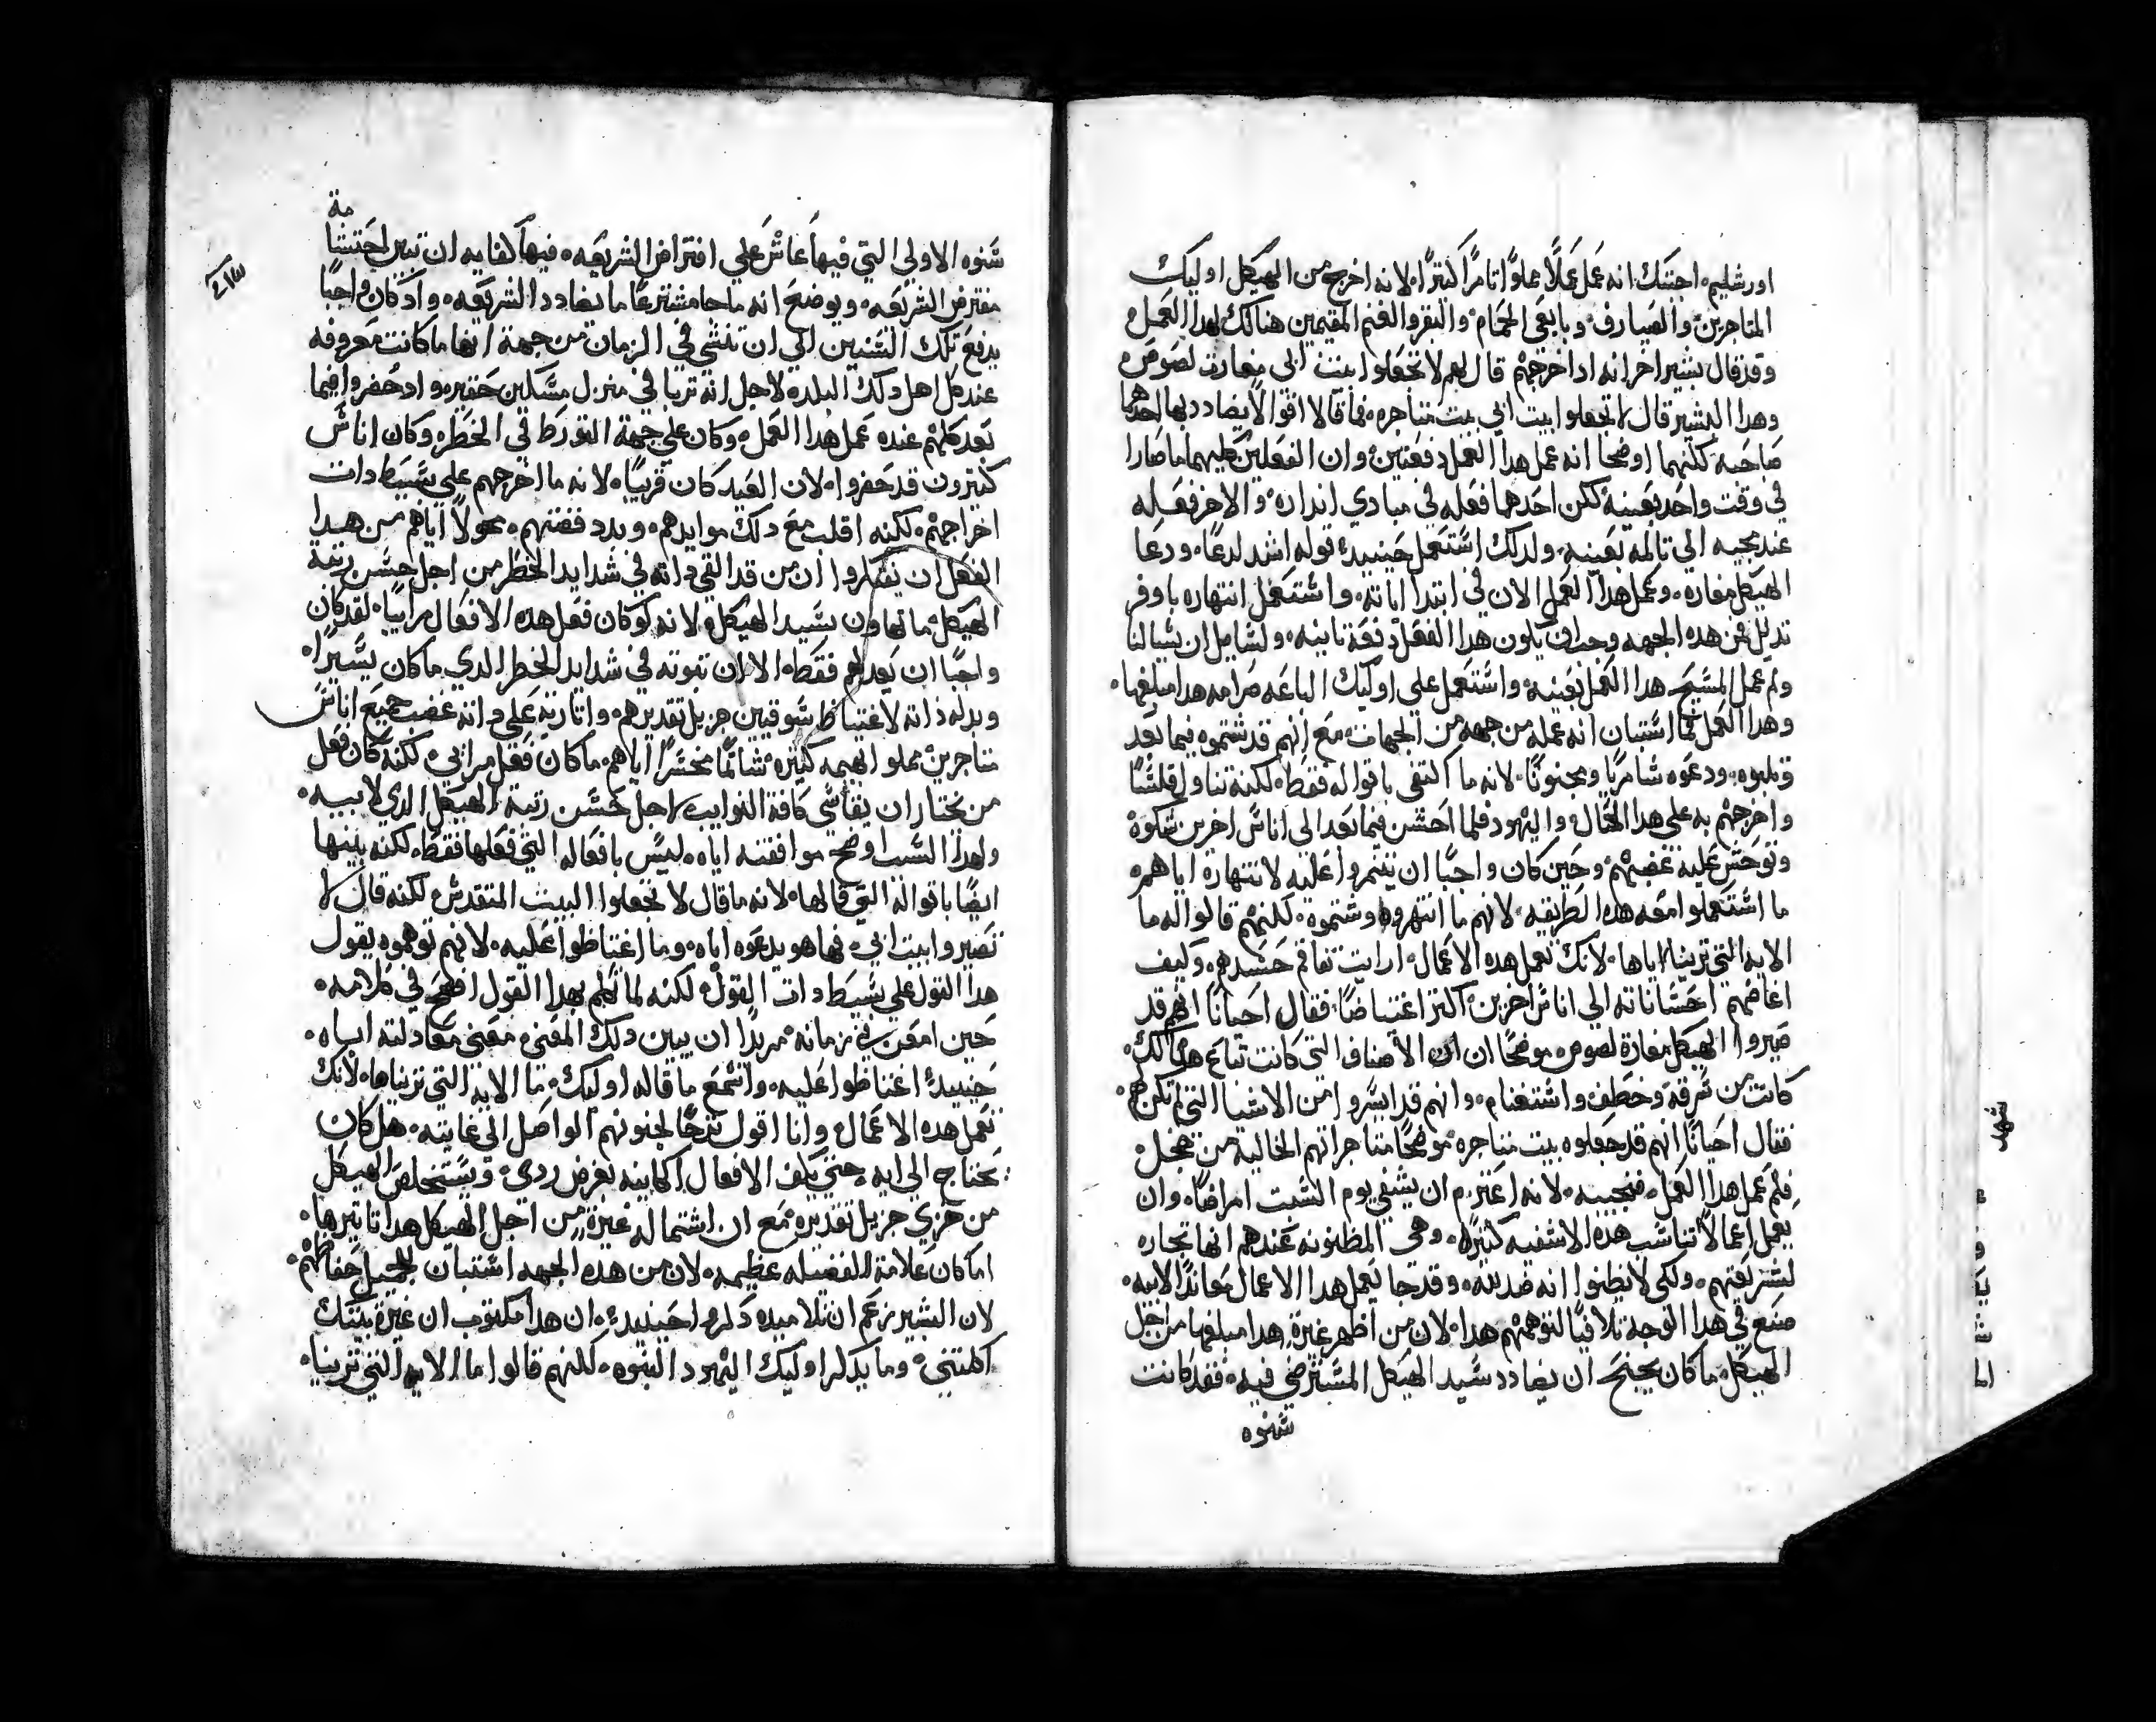 اورشليم، اجتنك انه عمل عملا مملوًا تامرًا كثيرًا، لانه اخرج من الهيكل اوليك
المتاجرين، والصيارف، وبايعي الحمام، والبقر والغنم المقيمين هنالك لهدا العمل
وقد قال بشير اخر انه ادا اخرجهم قال لهم لا تجعلوا بيت ابي مغارة لصوص
وهدا البشير قال لا تجعلوا بيت ابي بيت متاجره، فما قالا اقوالًا يضادد بها احدهما
صاحبه لكنهما اوضحا انه عمل هدا العمل دفعتين، وان الفعلين كليهما ما صارا
في وقت واحد بعينه، لكن احدهما فعله في مبادي انداره، والاخر فعله
عند مجيه الي تالمه بعينه، ولدلك استعمل حينيدٍ قوله اشد لدعًا، ودعا
الهيكل مغاره، وعمل هدا العمل الان في ابتدا اياته، واستعمل انتهاره باوفر
تدليل من هده الجهه وجد ان يكون هدا الفعل دفعة تانيه، ولسايل ان يسالنا
ولم عمل المسيح هدا العمل بعينه، واستعمل علي اوليك الباعه صرامه هدا مبلغها
وهدا العمل فما استبان انه عمله من جهه من الجهات، مع انهم قد شتموه فيما بعد
وتلبوه، ودعوه سامريًا ومجنونًا، لانه ما اكتفي باقواله فقط، لكنه تناول قلسًا
واخرجهم به علي هدا الحال، واليهود فلما احسن فيما بعد الي اناس اخرين شكوه
وتوحش عليه غضبهم، وحين كان واجبًا ان يتنمروا عليه لانتهارة اياهم
ما استعملوا معه هده الطريقه، لانهم ما انتهروه وشتموه، لكنهم قالوا له ما
الايه التي ترينا اياها، لانك تعمل هده الاعمال، ارايت تفاقم حسدهم، وكيف
اغاضهم احساناته الي اناس اخرين اكثر اغتياضًا، فقال احيانًا انهم قد
صيروا الهيكل مغارة لصوص، موضحًا ان الاصناف التي كانت تباع هنالك
كانت من سرقه وخطف، واستغنام، وانهم قد ايسروا من الاشيا التي لم تكن لهم
فقال احيانًا انهم قد جعلوه بيت متاجره، موضحًا متاجراتهم الخاليه من خجل
فلم عمل هدا العمل، فنجيبه، لانه اعتزم ان يشفي يوم السبت امراضًا، وان
يعمل اعمالًا تناسب هده الاشفيه كثيرًا، وهي المظنونه عندهم انها تجاره
لشريعتهم، ولكي لا يظنوا انه ضد لله، وقد جا يعمل هدا الاعمال معاندًا لابيه
صنع في هدا الوجه تلافيًا لتوهمهم هدا، لان من اظهر غيرة، هدا مبلغها من اجل
الهيكل، ما كان يجنح ان يضادد سيد الهيكل المسترضي فيه، فقد كانت
سنوه
مة
سنوه الاولي التي فيها عاش علي افتراض الشريعه، فيها كفايه ان تبين احتشا
مفترض الشريعه، ويوضح انه ما جا مشترعًا ما يضادد الشريعه، واد كان واجبًا
يدفع تلك السنين الي ان تنسي في الزمان من جهة انها ما كانت معروفه
عند كل اهل دلك البلده، لاجل انه تربا في منزل مسكين حقيره، واد حضروا فيما
بعد كلهم عنده عمل هدا العمل، وكان علي جهة التورط في الخطر، وكان اناس
كثيرون قد حضروا، لان العيد كان قريبًا، لانه ما اخرجهم علي بسيط دات
اخراجهم، لكنه اقلب مع دلك موايدهم، وبدد فضتهم، مخولًا اياهم من هدا
الفعل ان يفكروا ان من قد القي داته في شدايد الخطر من اجل حسن رتبة
الهيكل، ما تهاون بسيد الهيكل، لانه لو كان فعل هده الافعال مراييًا، لقد كان
واجبًا ان يعدلهم فقط، الا ان ثبوته في شدايد الخطر الدي ما كان يسيرًا
وبدله داته لاغتياط سوقيين جزيل تقديرهم، واتاريه علي داته غضب جميع اناس
متاجرين مملوا بهيمه كثيره، شاتمًا مخسرًا اياهم، ما كان فعل مرايي، لكنه كان فعل
من يختار ان يقاسي كافة النوايب لاجل حسن رتبة الهيكل الدي لابيه
ولهدا السبب اوضح موافقته اياه، ليس بافعاله التي فعلها فقط، لكنه بينها
ايضًا باقواله التي قالها، لانه ما قال لا تجعلوا البيت المتقدس لكنه قال لا
تصيروا بيت ابي، فها هو يدعوه اياه، وما اغتاظوا عليه، لانهم توهموه يقول
هدا القول علي بسيط دات القول، لكنه لما تكلم بهدا القول افصح في كلامه
حين امعن في زمانه، مريدًا ان يبين دلك المعني، معني معادلته اباه
حينيدٍ اغتاظوا عليه، واسمع ما قاله اوليك، ما الايه التي تريناها، لانك
تعمل هده الاعمال، وانا اقول تترحًا لجنونهم الواصل الي غايته، هل كان
يحتاج الي ايه حتي يكف الافعال الكاينه بغرض ردي، ويستخلص الهيكل
من خزي جزيل تقديره، مع ان اشتماله غيرة، من اجل الهيكل هدا تاتيرها
اما كان علامة لفضيله عظيمه، لان من هده الجهه استبان للجميل حفاظهم
لان البشير زعم ان تلاميده دكروا حينيدٍ، ان هدا مكتوب ان غيرة بيتك
اكلتني، وما يدكر اوليك اليهود النبوه، لكنهم قالوا ما الايه التي ترينا